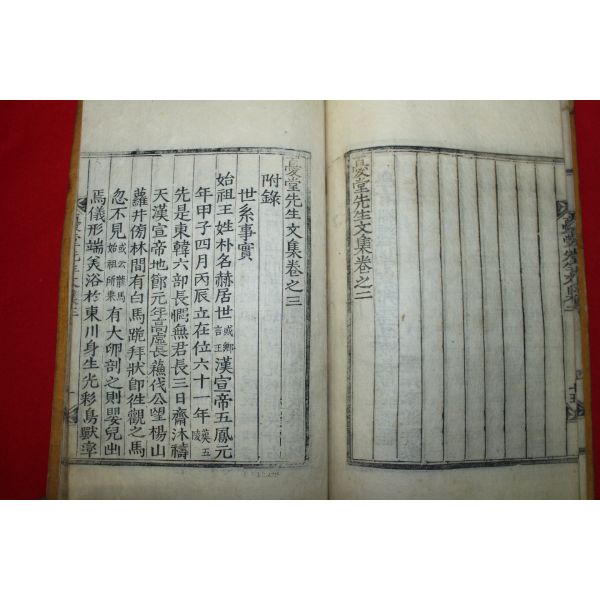 憂堂先生文集卷之二
憂堂先生文集卷之三
附錄
世系事實
始祖王姓朴名赫居世或鄕言王漢宣帝五鳳元
年甲子四月丙辰立在位六十一年葬五陵
先是東韓六部長憫無君長三日齋沐禱
天漢宣帝地節元年高虛長蘓伐公望楊山
蘿井傍林間有白馬跪拜狀卽徃觀之馬
忽不見或云雞馬始祖所乘有大卵剖之則嬰兒出
焉儀形端美浴於東川身生光彩鳥獸率